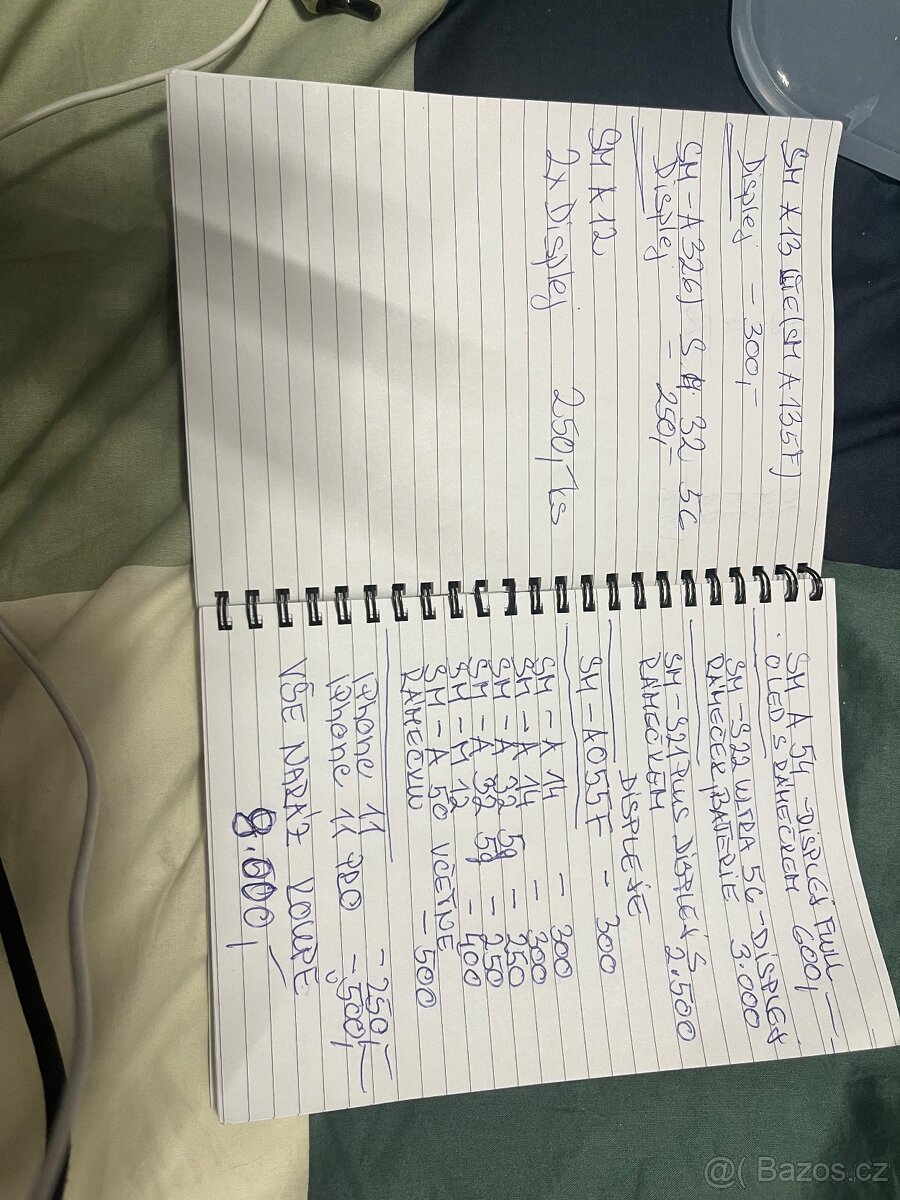 SM A13 LTE (SM A135F)
Displej - 300,-
SM-A326) SM 32 5G
Displej - 250,-
SM A12
2x Displej 250,-/ks
SM A 54 - DISPLEJ FULL
• OLED S RÁMEČKEM 600,-
SM-S22 ULTRA 5G - DISPLEJ
RÁMEČEK, BATERIE 3.000
SM-S21 PLUS DISPLEJ S
RÁMEČKEM 2.500
DISPLEJE
SM-A055F - 300
SM-A 14 - 300
SM-A 14 - 300
SM-A 32 5g - 250
SM-A 32 5g - 250
SM-M 12 - 400
SM-A 50 VČETNE
RÁMEČKU - 500
iPhone 11 - 250,-
iPhone 11 PRO - 500,-
VŠE NARÁZ KOUPĚ
8.000,
@( Bazos.cz